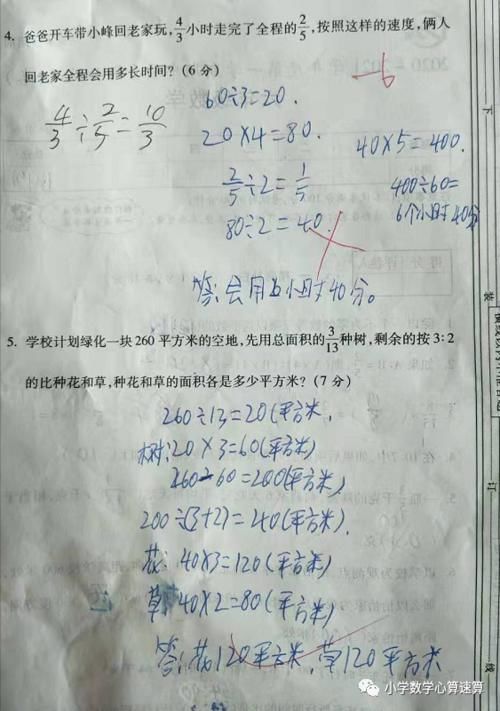 4. 爸爸开车带小峰回老家玩，4/3小时走完了全程的2/5，按照这样的速度，俩人
回老家全程会用多长时间？(6 分)
-6
4/3÷2/5=10/3
60÷3=20.
20×4=80.
2/5÷2=1/5
80÷2=40.
40×5=400.
400÷60=
6个小时40分
答:会用6小时40分。
5. 学校计划绿化一块 260 平方米的空地，先用总面积的3/13种树，剩余的按 3:2
的比种花和草，种花和草的面积各是多少平方米？(7 分)
260÷13=20(平方米.
树:20×3=60(平方米)
260-60=200(平方米)
200÷(3+2)=40(平方米).
花:40×3=120(平方米)
草:40×2=80(平方米)
答:花120平方米,草120平方米
下
装
订
线
小学数学心算速算